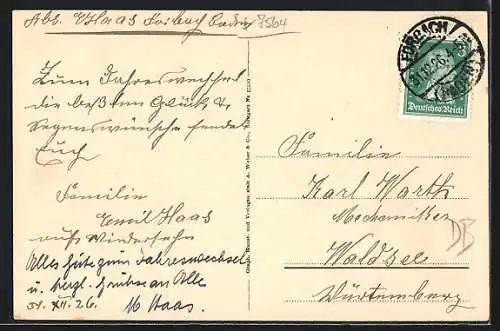 Abs. Haas Forbach Baden 7564
FORBACH
31.12.26.
(BADEN)
Deutsches Reich
Zum Jahreswechsel
die besten Glück &
Segenswünsche sendet
Euch
Familie
Emil Haas
auf Wiedersehn
Alles Gute zum Jahreswechsel
u. herzl. Grüße an Alle
31. XII. 26. M Haas.
Graph. Kunst- und Verlagsanstalt A. Weber & Co., Stuttgart
Familie
Karl Warth
Mechaniker
Waldsee
Württemberg
DB